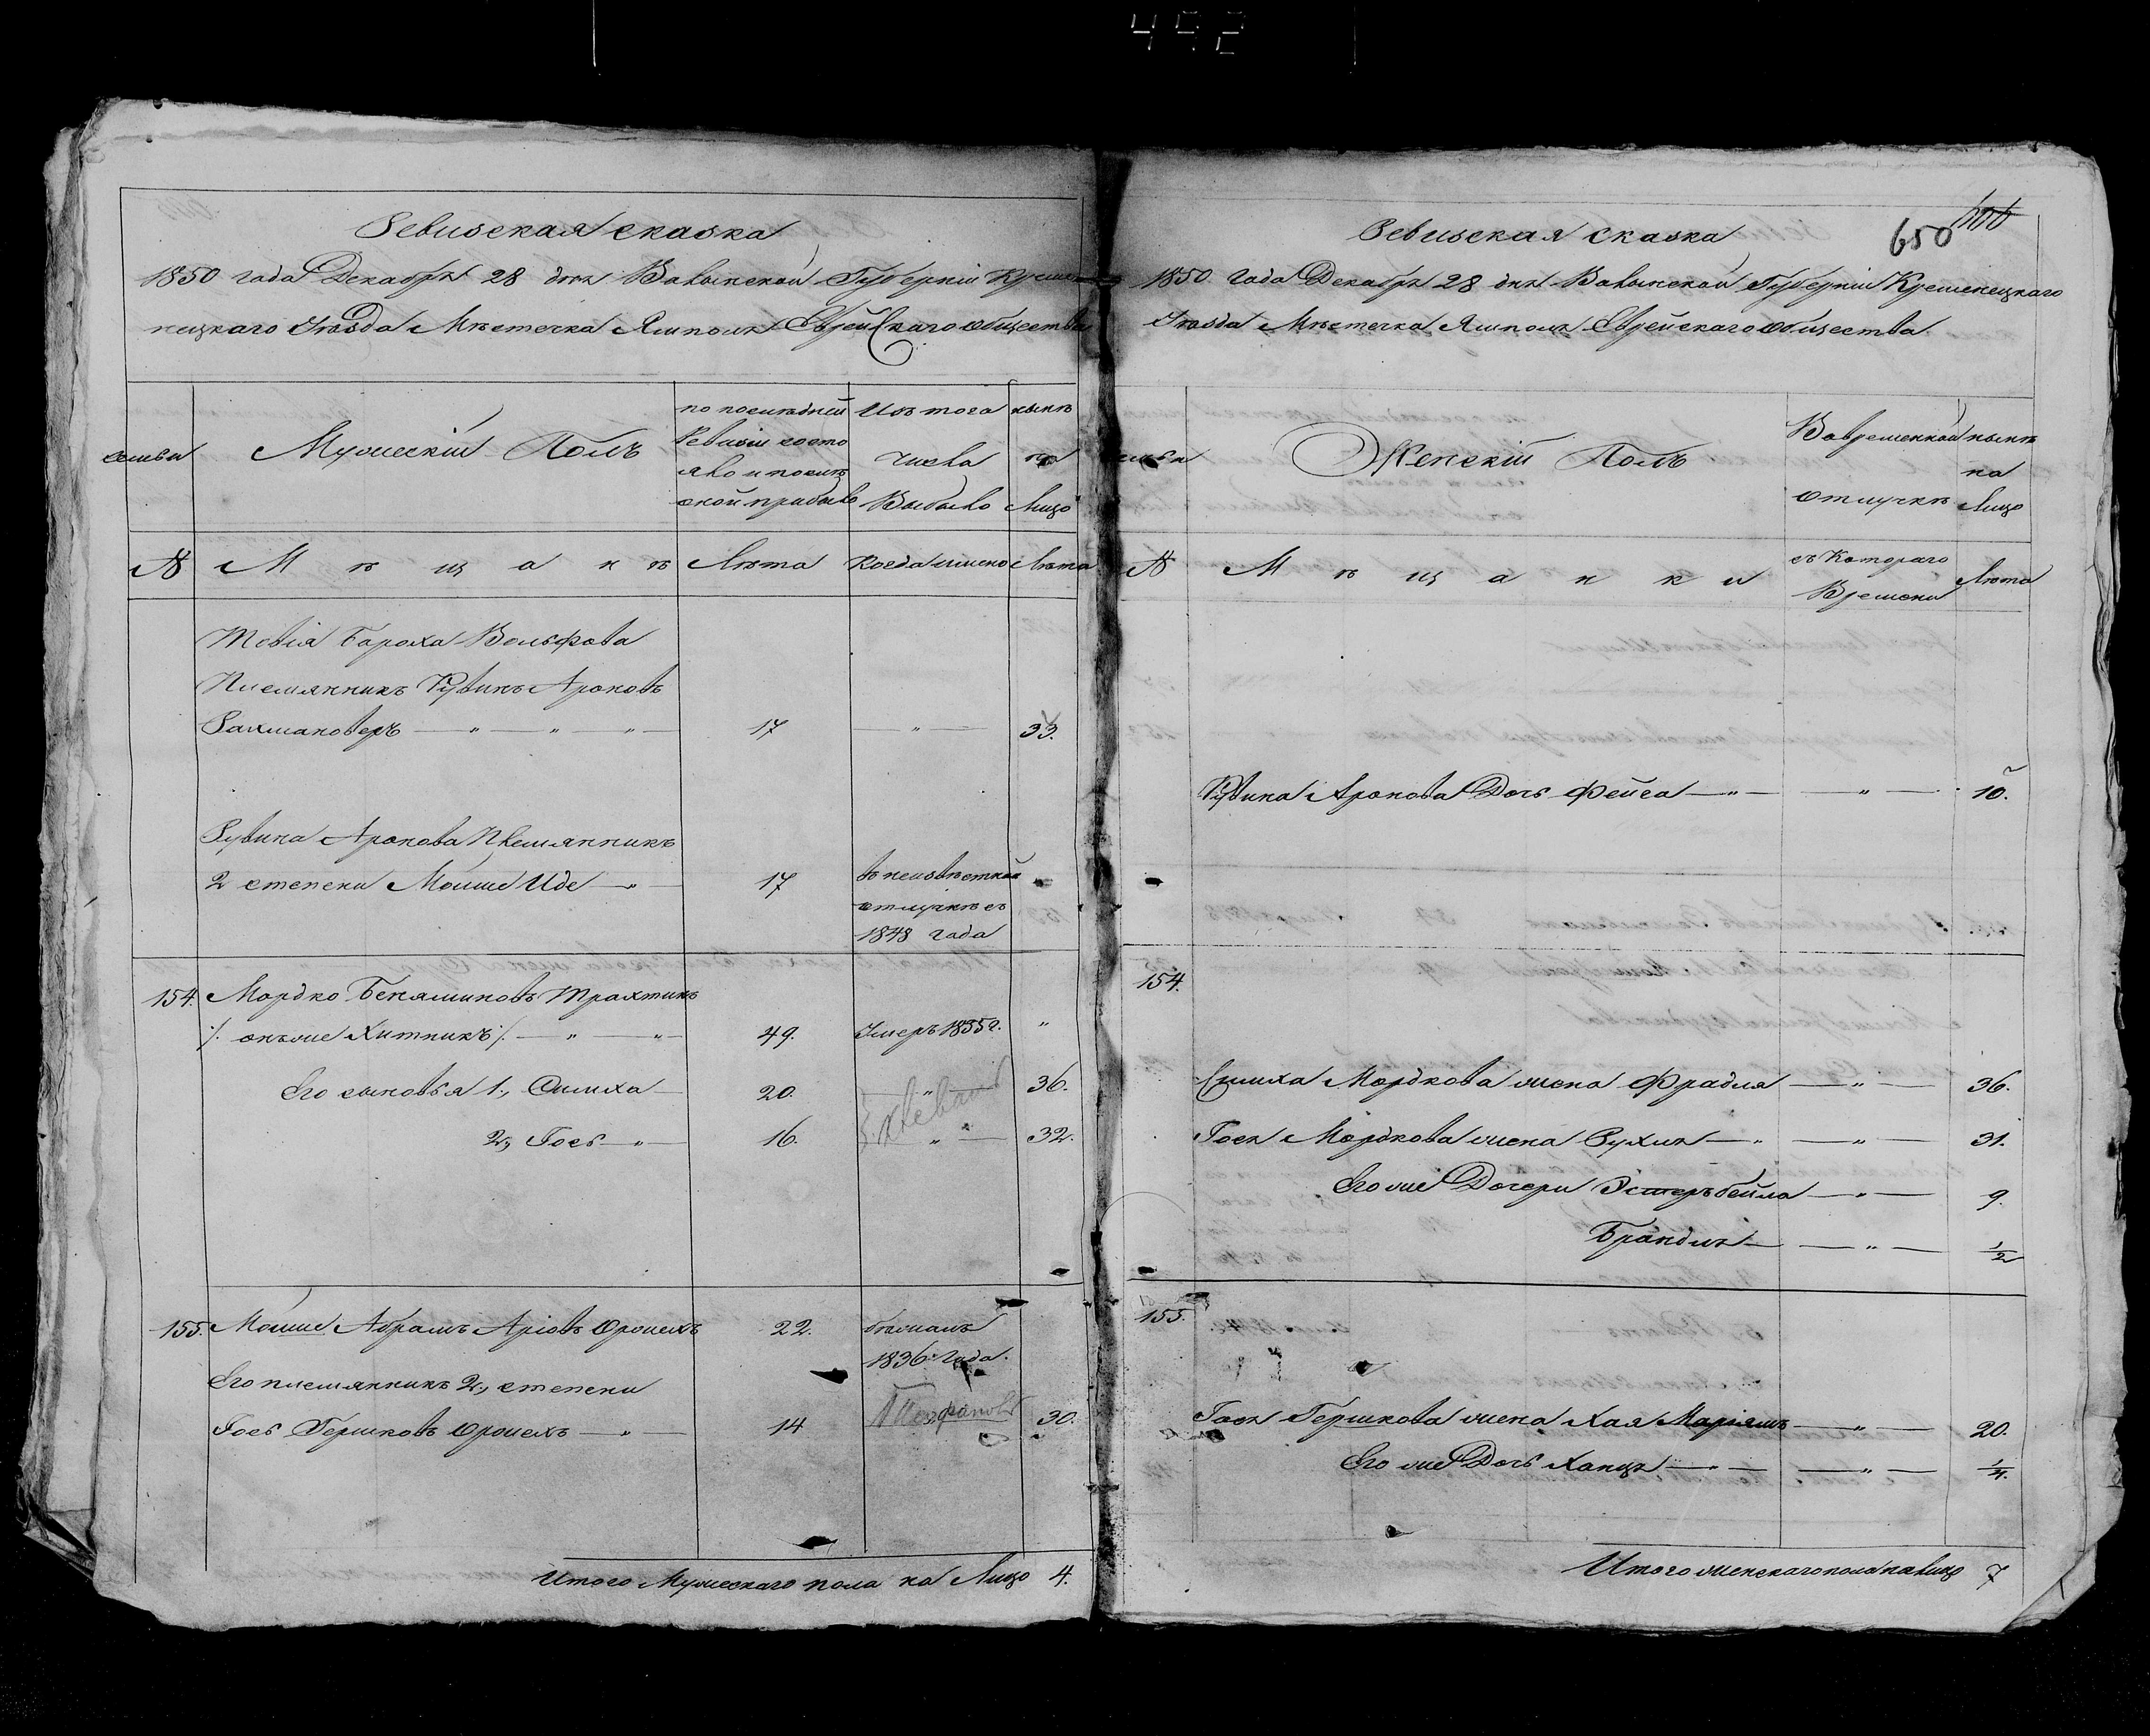 492
Ревизская сказка
1850 года Декабря 28 дня Волынской Губерніи Креме-
нецкаго Уѣзда Мѣстечка Ямполя Еврейскаго общества
семьи
Мужескій Полъ
по последней
Ревизіи состо
яло и после
оной прибыло
Изъ того
числа
Выбыло
нынѣ
на
Лицо
№
Мѣщанѣ
Лѣта
Когда имено
Лѣта
Тевія Бороха Вольфова
Племянникъ Рувинъ Ароновъ
Рахмановеръ 17 33.
Рувина Аронова Племянникъ
2 степени Мошше Иде 17
въ неизвѣстной
отлучкѣ съ
1848 года
154. Мордко Беняминовъ Трахтинъ
/. онъ же Хитникъ ./ 49. Умеръ 1835 г. "
Его сыновья 1., Симха 20. " 36.
2., Гось 16. " 32.
155. Мошше Абрамъ Аріовъ Ороцехъ 22. бѣжалъ
1836. Года.
Его племянникъ 2., степени
Гось Гершковъ Ороцехъ 14 30.
Итого Мужескаго пола на Лицо 4.
650
Ревизская Сказка
1850 Года Декабря 28 дня Волынской Губерніи Кременецкаго
Уѣзда Мѣстечка Ямполя Еврейскаго общества
семьи
Женскій Полъ
Вовременной
отлучкѣ
нынѣ
на
Лицо
№
Мѣщанки
съ Котораго
Времени
Лѣта
Рувина Аронова Дочь Фейга " 10.
154.
Симха Мордкова жена Фрадля " 36.
Гося Мордкова жена Рухля " 31.
Его же Дочери Эстеръ бейла " 9.
Брандля " 1/2
155.
Гося Гершкова жена Хая Маріямъ " 20.
Его же Дочь Ханця " 1/4.
Итого женскаго пола на Лицо 7